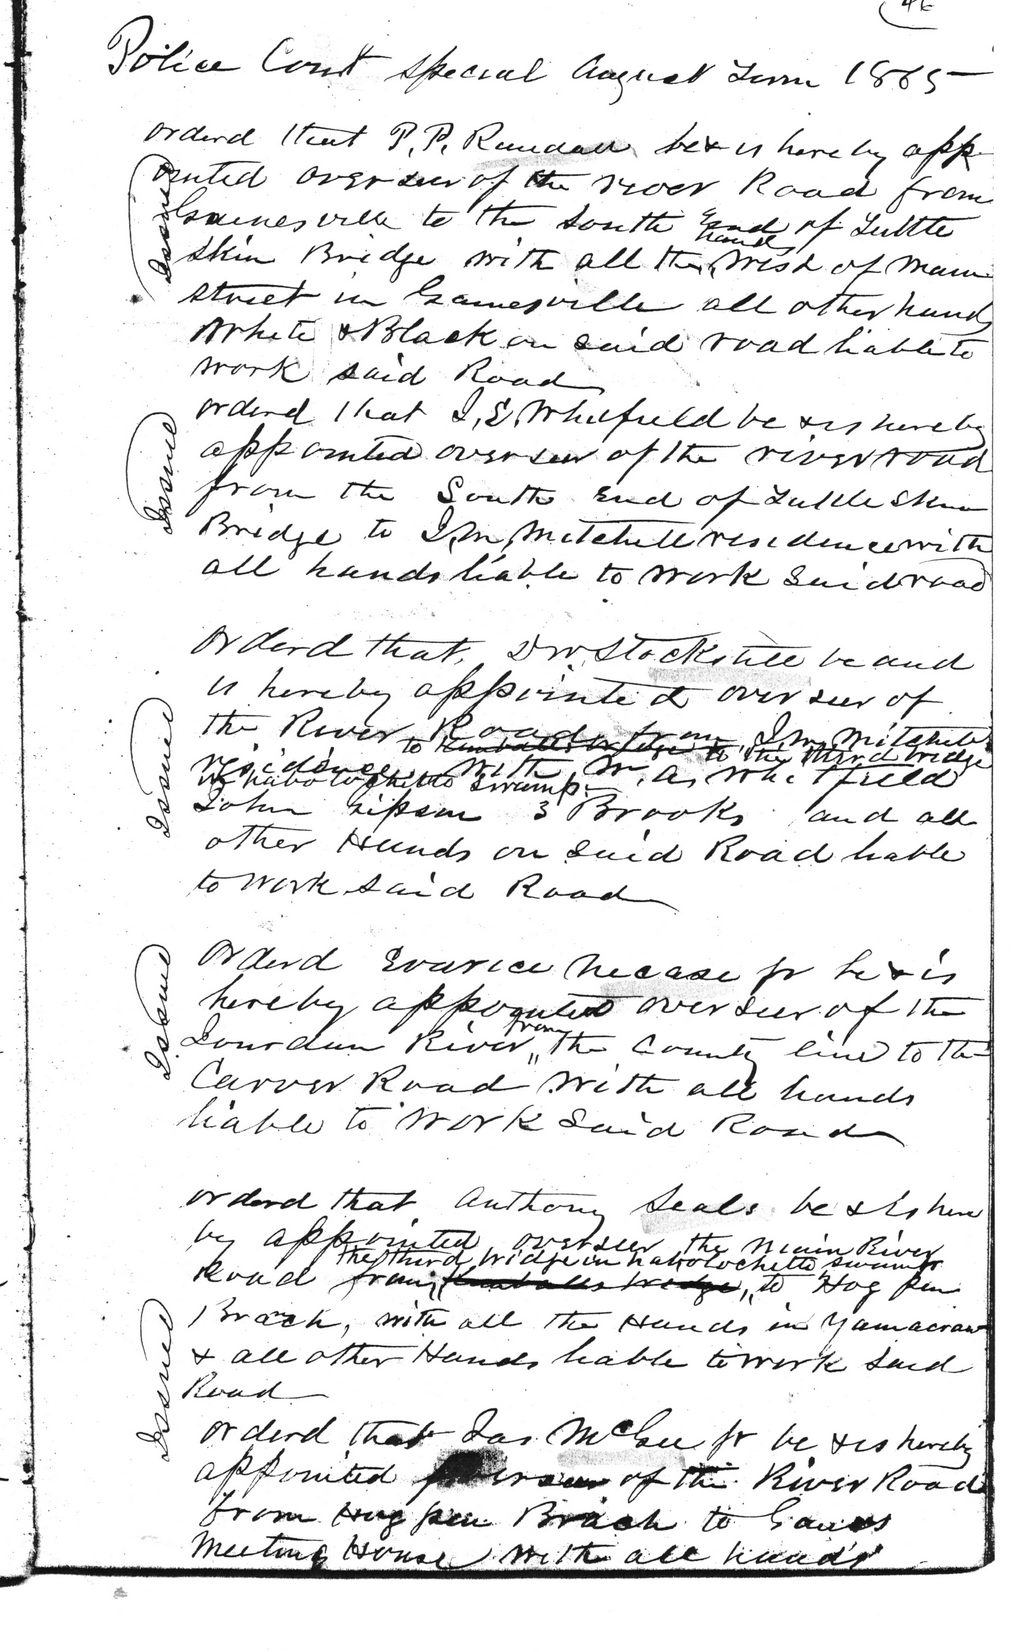 46
Police Court special August Term 1865
orderd that P. P. Randall be & is hereby app
ointed overseer of the river Road from
Gainesville to the South End of Tuttle
Skin Bridge with all the hands West of Main
street in Gainesville all other hands
White & Black on said road liable to
work said Road
Issued
orderd that J. E. Whitfield be & is hereby
appointed overseer of the river road
from the South End of Tuttle Skin
Bridge to J. M. Mitchell residence with
all hands liable to work said road
Issued
orderd that, D W. Stockstill be and
is hereby appointed overseer of
the River Road from J. M. Mitchell
to Kimballs bridge to the third bridge
residence with Wm. A. Whitfield
in habolochitto swamp
John Sipson 3 Brooks and all
other Hands on said Road liable
to work said Road
Issued
orderd Evarice Necase jr be & is
hereby appointed overseer of the
Jourdan River from the County line to the
Carver Road with all hands
liable to work said Road
Issued
orderd that Anthony Seals be & is here
by appointed overseer the Main River
the third bridge in habolochitto swamp
Road from Kimballs bridge, to Hog pen
Brach, with all the Hands in Yamacraw
& all other Hands liable to work said
Road
Issued
orderd that Jas McGee jr be & is hereby
appointed overseer of the River Road
from Hog pen Brach to
Meeting House with all hands